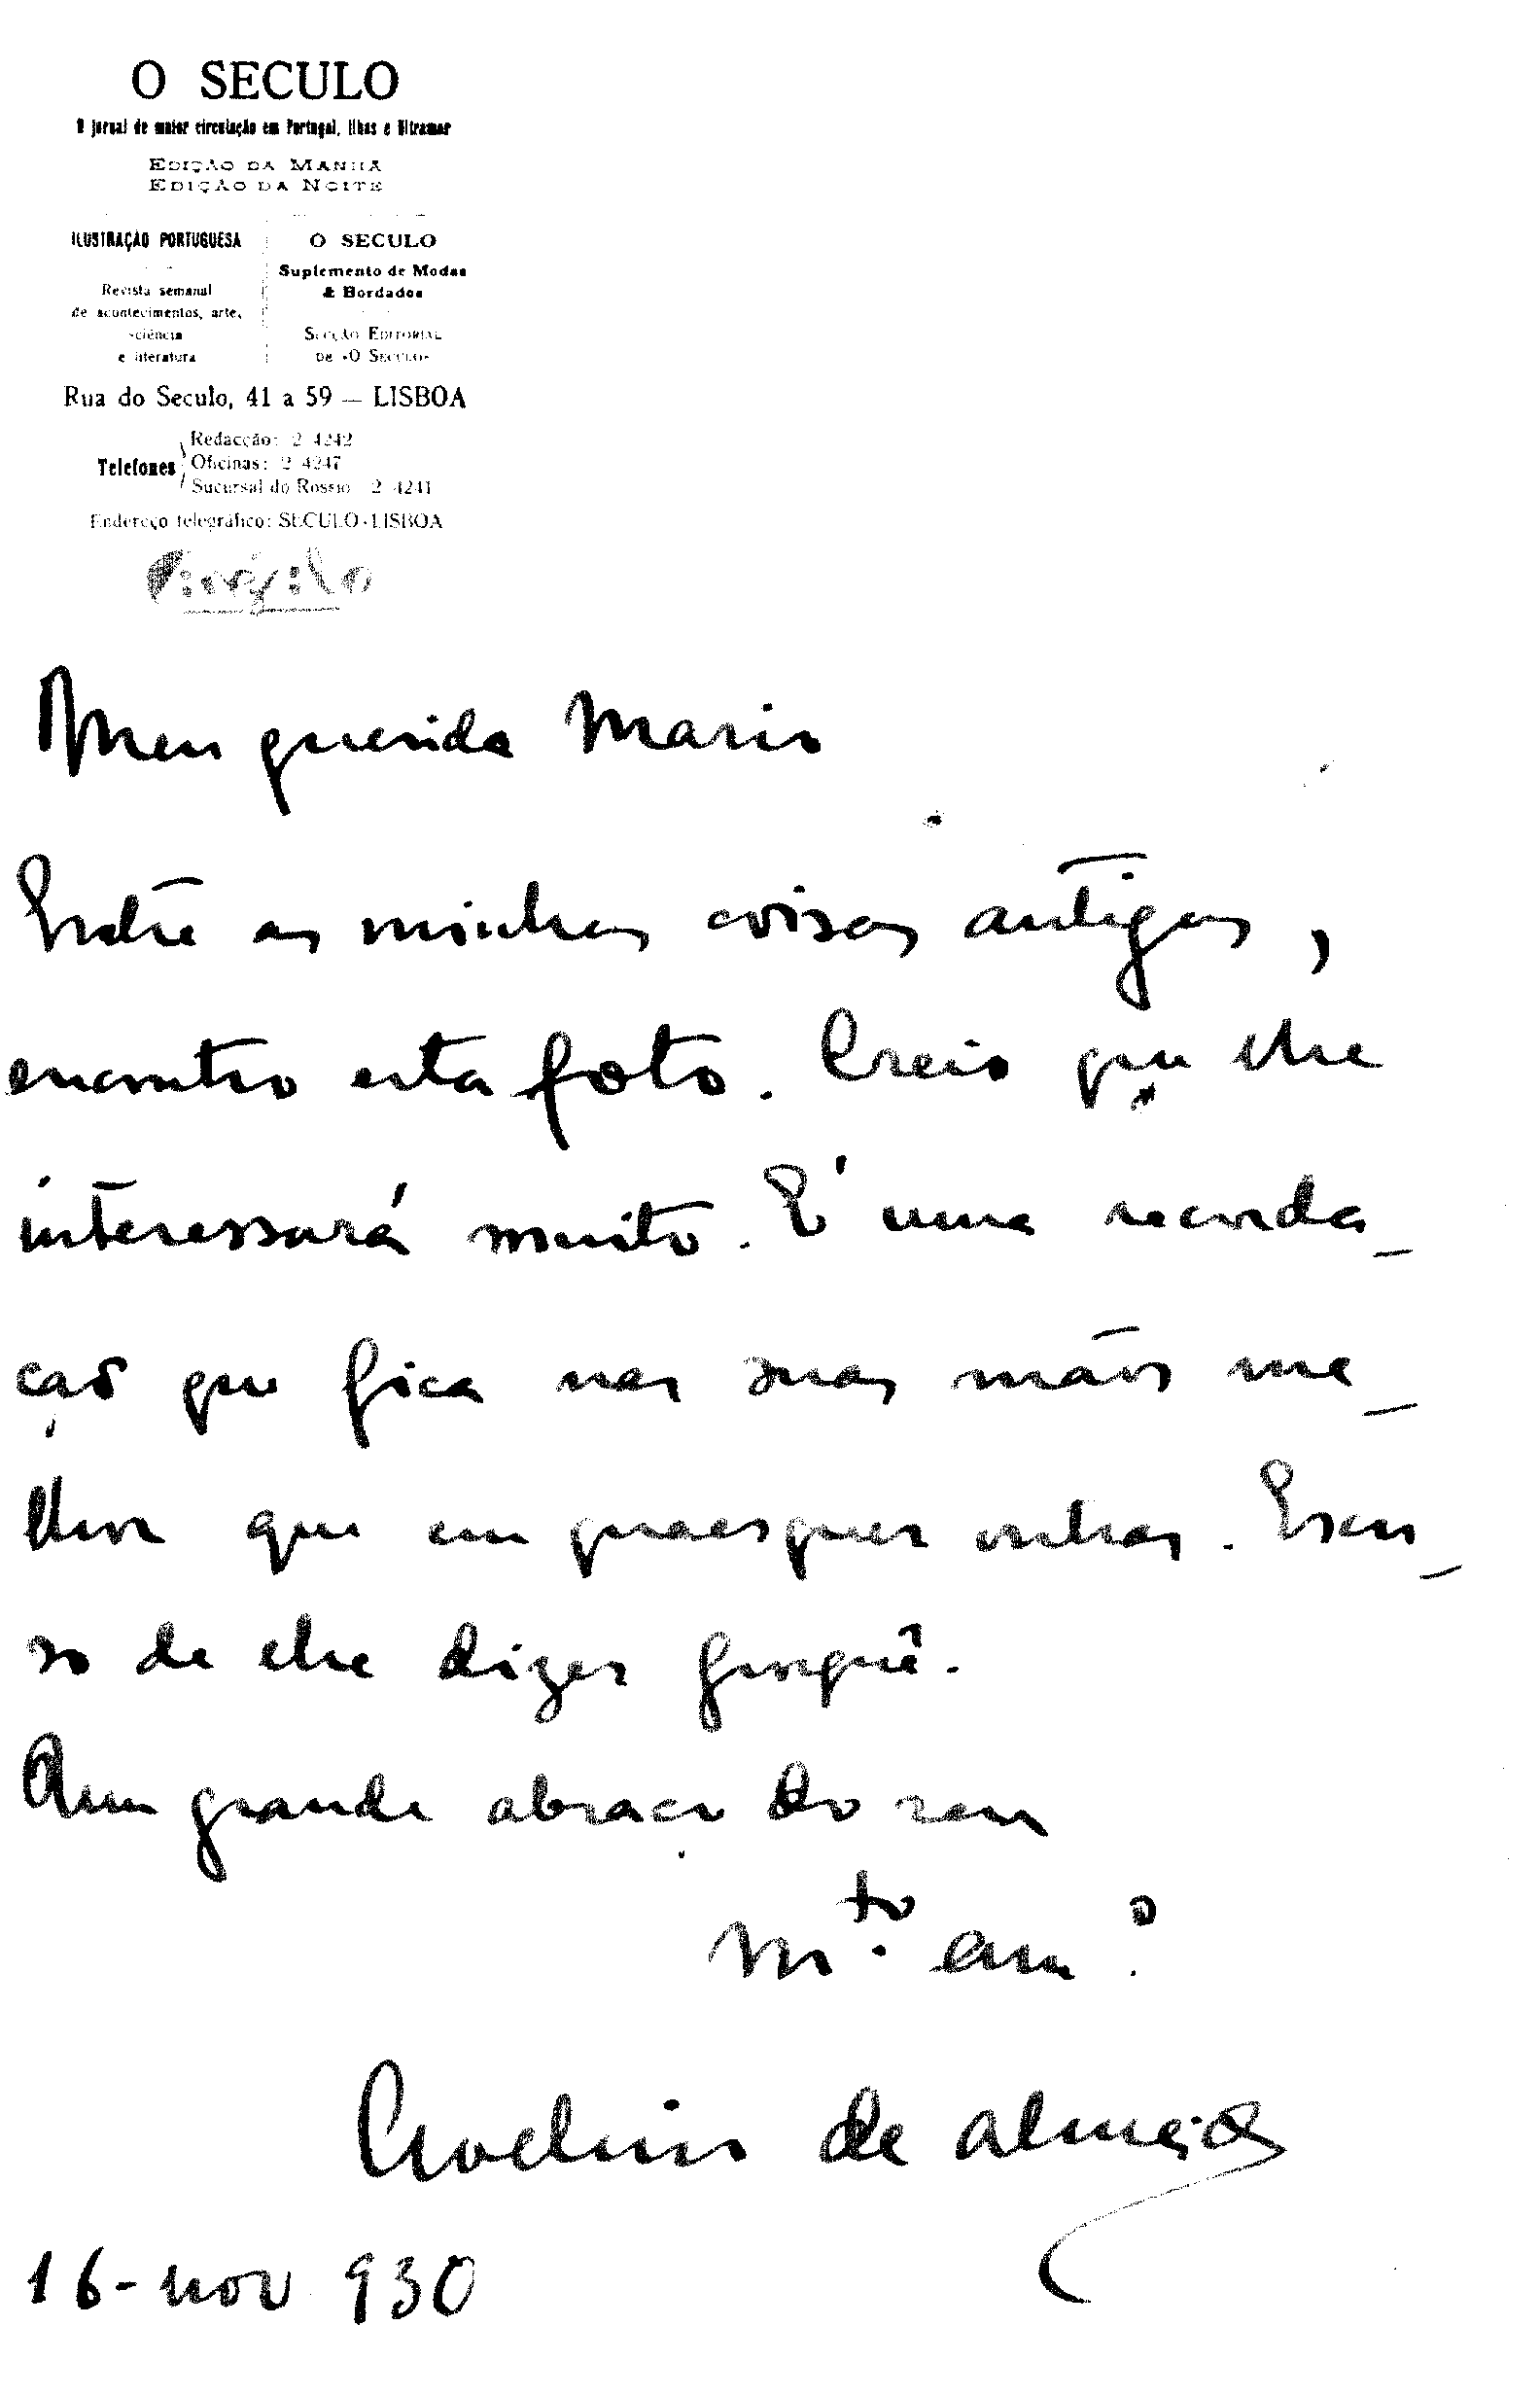 O SECULO
O jornal de maior circulação em Portugal, Ilhas e Ultramar
EDIÇÃO DA MANHÃ
EDIÇÃO DA NOITE
ILUSTRAÇÃO PORTUGUESA
Revista semanal
de acontecimentos, arte,
sciência
e literatura
O SECULO
Suplemento de Modas
& Bordados
SECÇÃO EDITORIAL
DE «O SECULO»
Rua do Seculo, 41 a 59 — LISBOA
Telefones
Redacção: 2 4242
Oficinas: 2 4247
Sucursal do Rossio 2 4241
Endereço telegráfico: SECULO-LISBOA
Meu querido Mario
Entre as minhas coisas antigas,
encontro esta foto. Creio que lhe
interessará muito. E' uma recorda-
ção que fica nas suas mãos me-
lhor que em quaesquer outras. Escu-
so de lhe dizer porquê.
Um grande abraço do seu
m.to am.o
Avelino de Almeida
16-nov 930